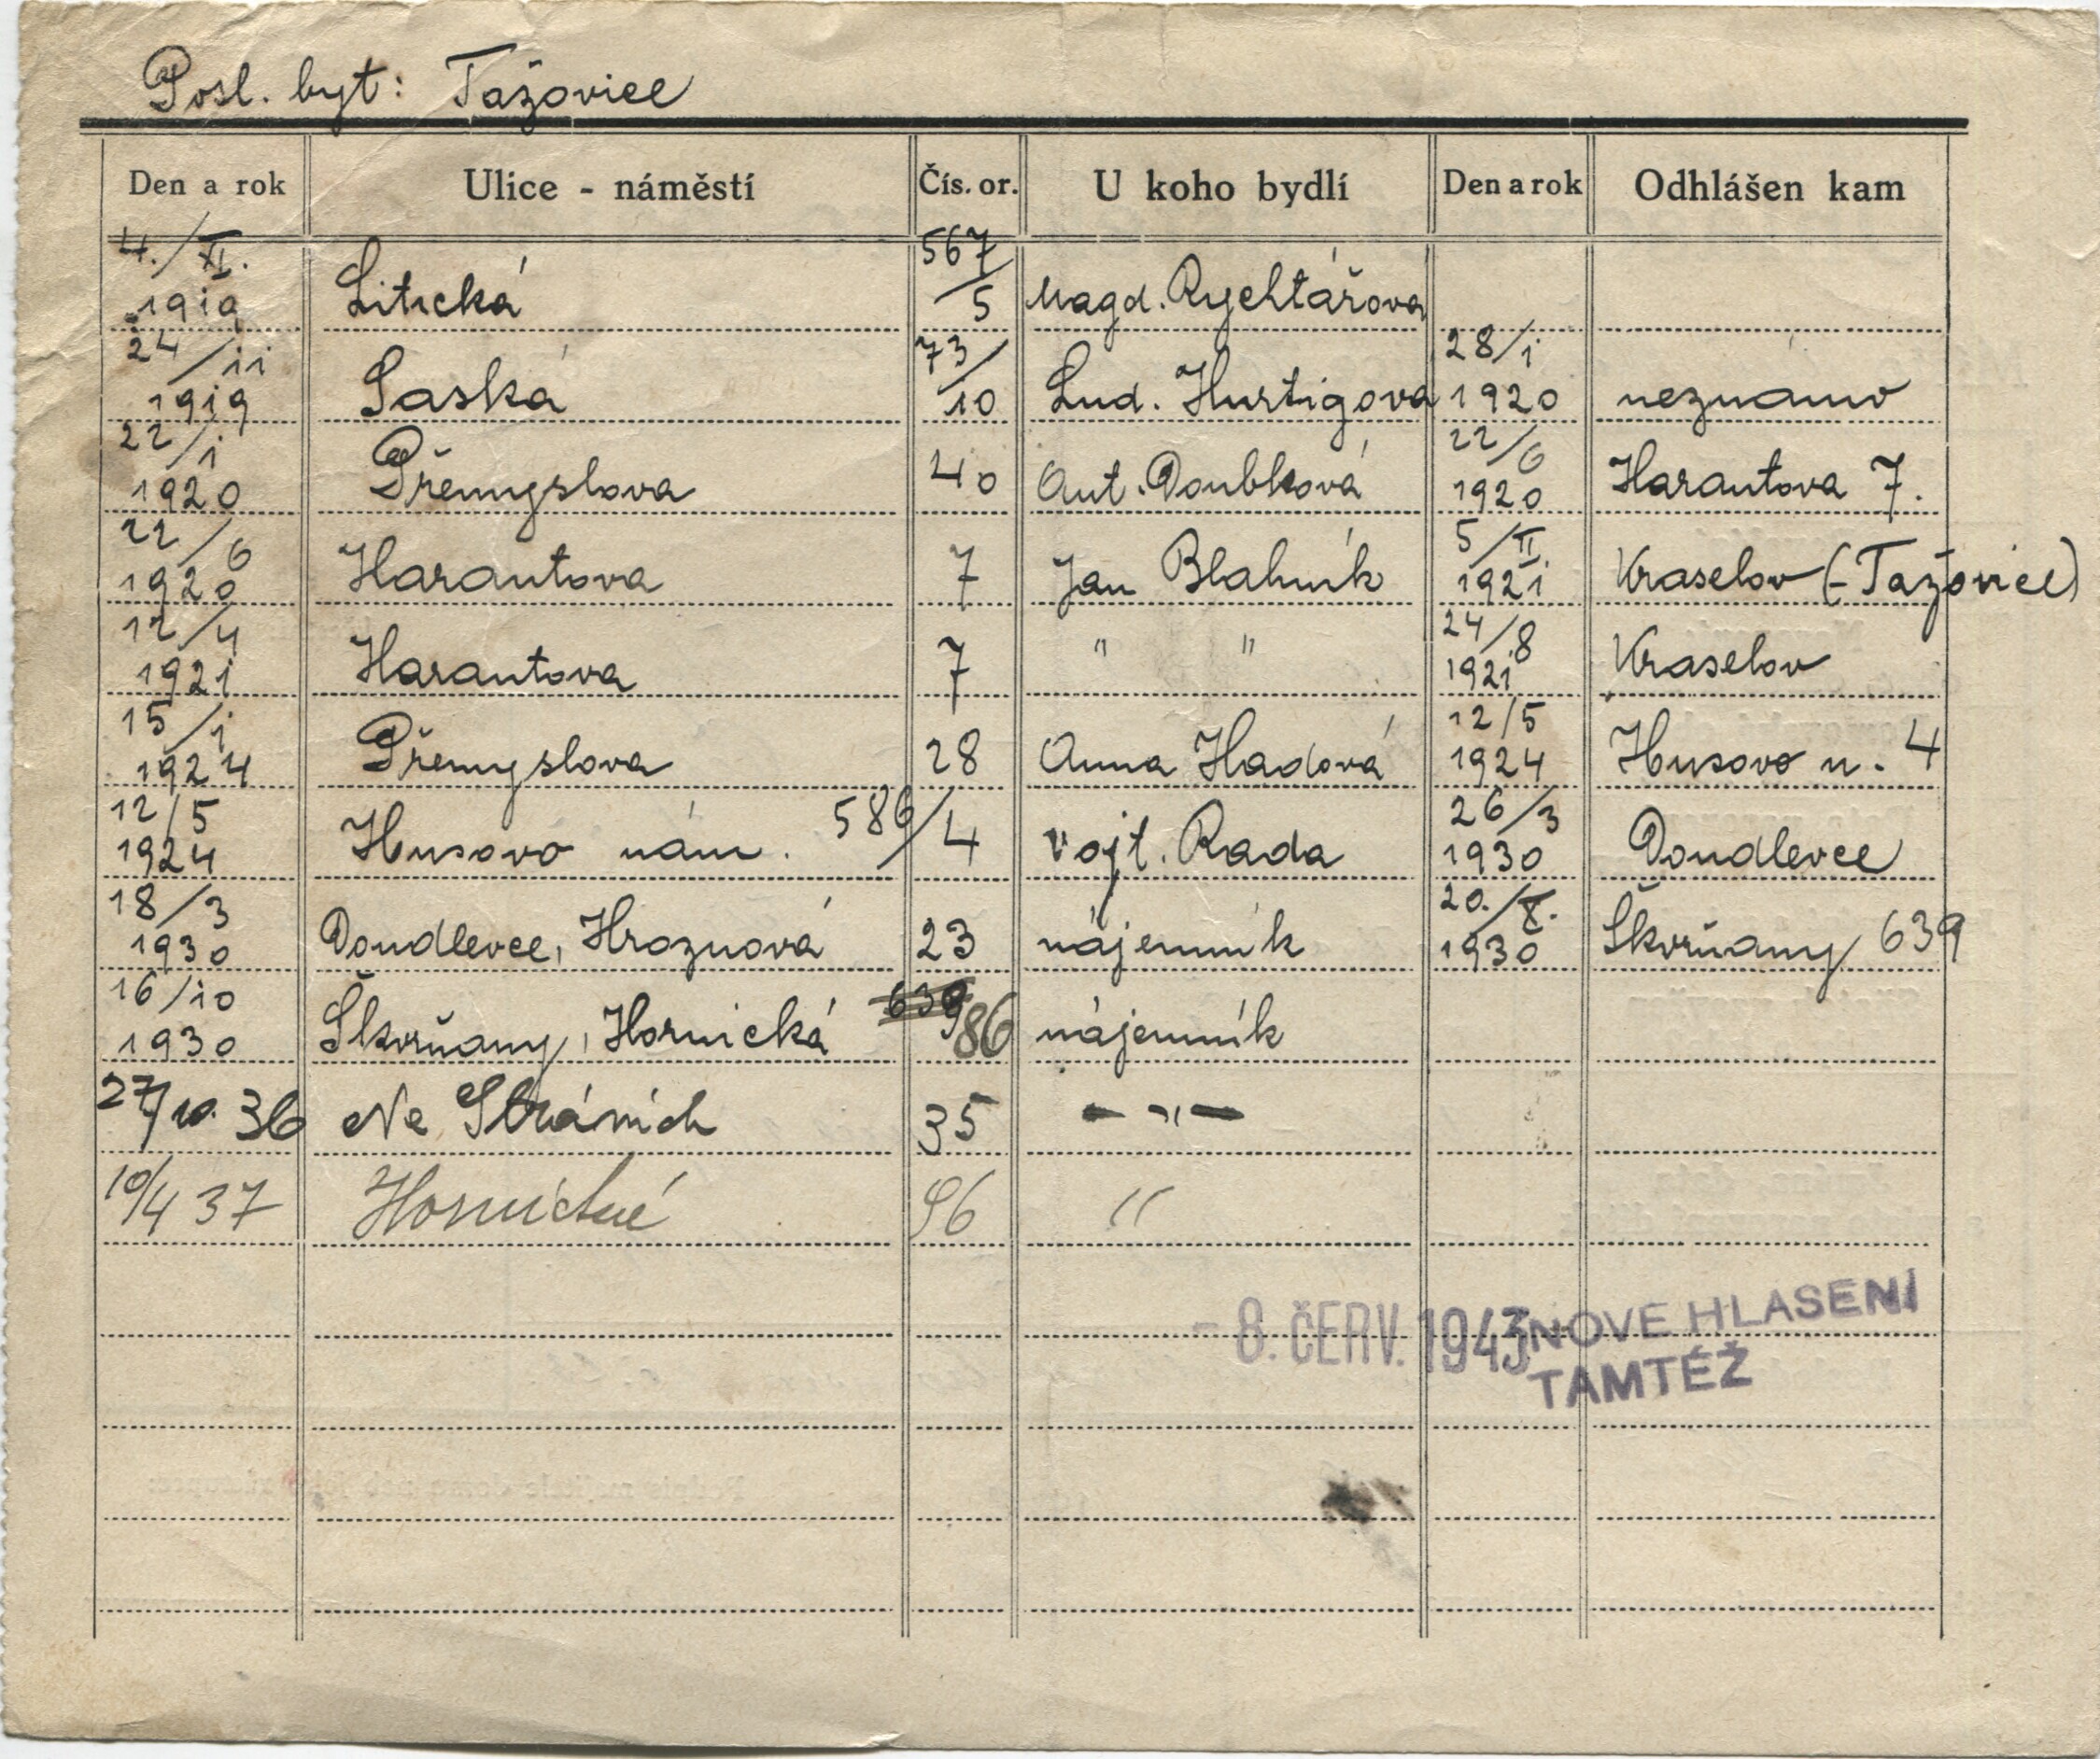 Posl. byt: Tažovice
Den a rok Ulice - náměstí Čís. or. U koho bydlí Den a rok Odhlášen kam
4./XI. 1919 Litická 567/5 Magd. Rychtářova
24/11 1919 Saská 73/10 Lud. Hurtigova 28/1 1920 neznámo
22/1 1920 Přemyslova 40 Ant. Doubková 22/6 1920 Harantova 7.
22/6 1920 Harantova 7 Jan Blahník 5/II 1921 Kraselov (-Tažovice)
12/4 1921 Harantova 7 " " 24/8 1921 Kraselov
15/1 1924 Přemyslova 28 Anna Hadová 12/5 1924 Husovo n. 4
12/5 1924 Husovo nám. 586/4 Vojt. Rada 26/3 1930 Doudlevce
18/3 1930 Doudlevce, Hroznová 23 nájemník 20./X. 1930 Škvrňany 639
16/10 1930 Škvrňany, Hornická 639 86 nájemník
27/10. 36 Na Stráních 35 - " -
10/4 37 Hornická 96 "
- 8. ČERV. 1943 NOVÉ HLÁŠENÍ
TAMTÉŽ